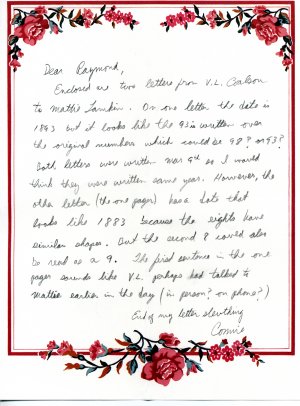 Dear Raymond,
Enclosed are two letters from V.L. Carlson
to Mattie Lamkin. On one letter the date is
1893 but it looks like the 93 is written over
the original numbers which could be 98? or 93?
Both letters were written Mar 9th so I would
think they were written same year. However, the
other letter (the one pager) has a date that
looks like 1883 because the eights have
similar shapes. But the second 8 could also
be read as a 9. The first sentence in the one
pager sounds like V.L. perhaps had talked to
Mattie earlier in the day (in person? on phone?)
End of my letter sleuthing
Connie